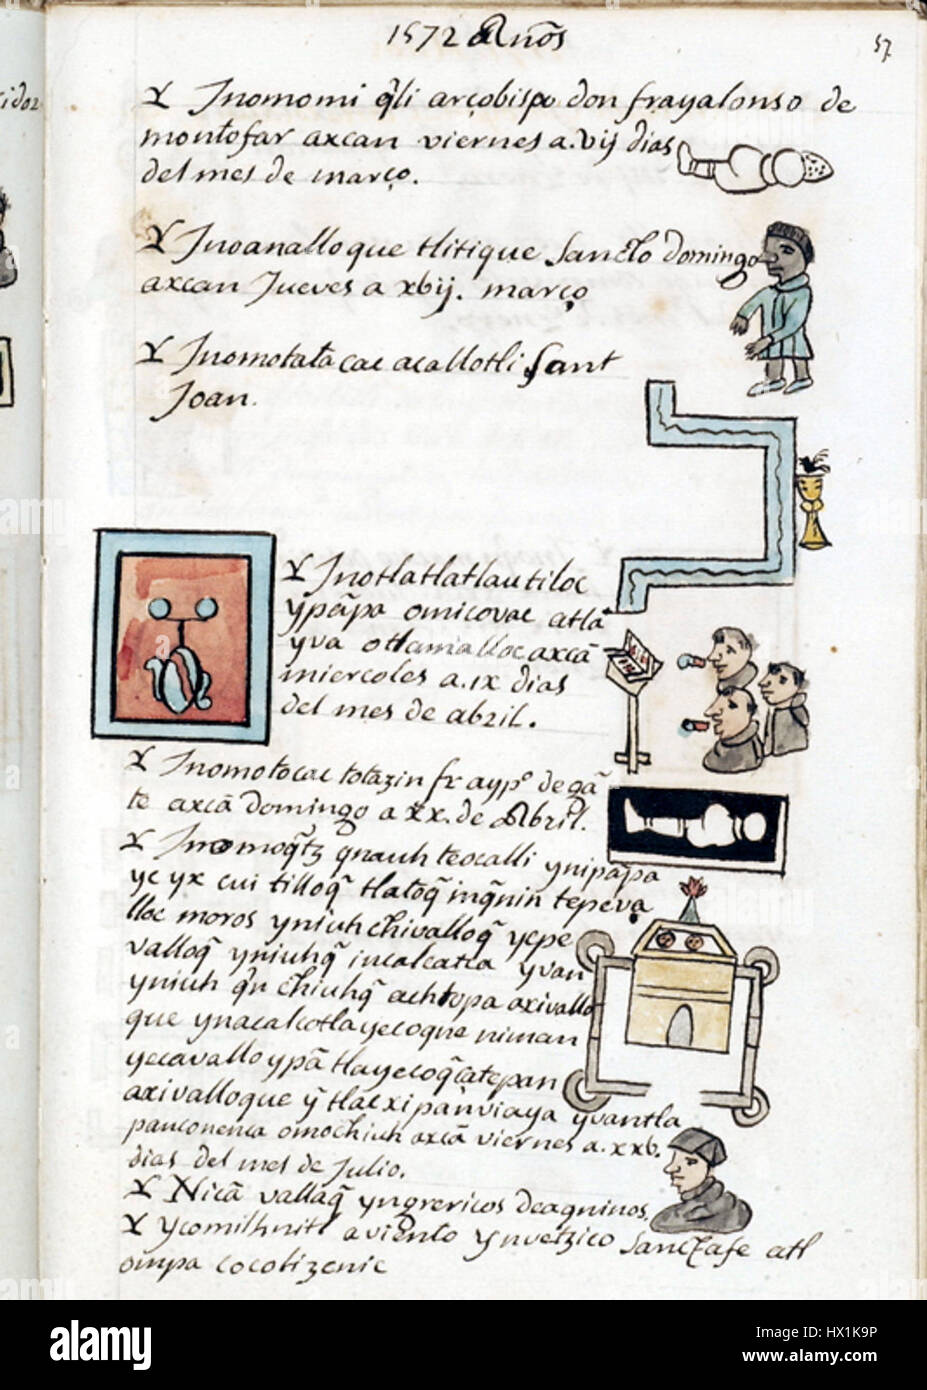 1572 Años
57
Ynomomiq̃li arçobispo don fray alonso de
montofar axcan viernes a. vij dias
del mes de março.
Ynoanalloque tlitique Sancto domingo
axcan Jueves a xbij. março
Ynomotataca acallotli Sant
Joan.
Ynotlatlatlautiloc
ypãpa omicovac atlã
yva otlamalloc axcã
miercoles a. ix dias
del mes de abril.
Ynomotocac totazin fr ayp° de gã
te axcã domingo a xx. de Abril.
quauh teocalli ynipãpa
yc yx cui tilloq̃ tlatoq̃ inq̃nin tepeva
lloc moros yniuh chivalloq̃ ycpe
valloq̃ yniuhq̃ incalcatca yvan
yniuh q̃n chiuhq̃ achtopa axivallo
que ynacalcotlayecoque niman
yecavallo ypã tlayecoq̃ çatepan
axivalloque
omochiuh axcã viernes a. xxb.
dias del mes de Julio.
Nicã vallaq̃ yngrericos deagninos
Ycomilhuitl aviento ynvetzico Sanctafe atl
ompa cocolizenic
alamy
Image ID: HX1K9P
www.alamy.com